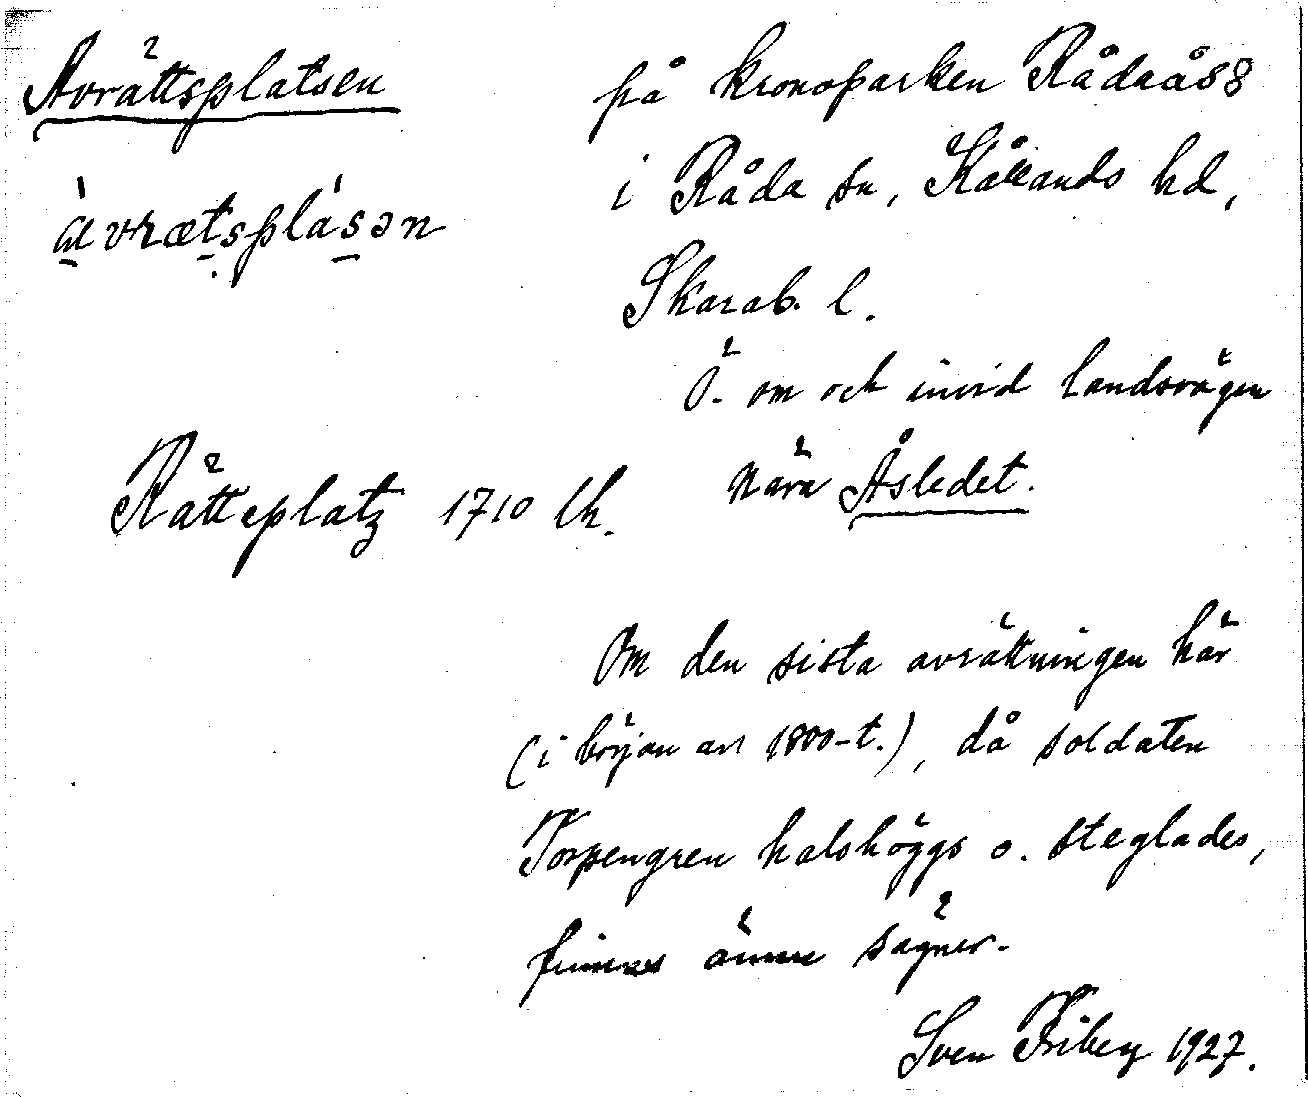 Avrättsplatsen
ævrætsplasən
på kronoparken Rådaås 8
i Råda sn, Kållands hd,
Skarab. l.
Ö. om och invid landsvägen
nära Åsledet.
Rätteplatz 1710 lk.
Om den sista avrättningen här
(i början av 1800-t.), då soldaten
Torpengren halshöggs o. steglades,
finnes ännu sägner.
Sven Friberg 1927.